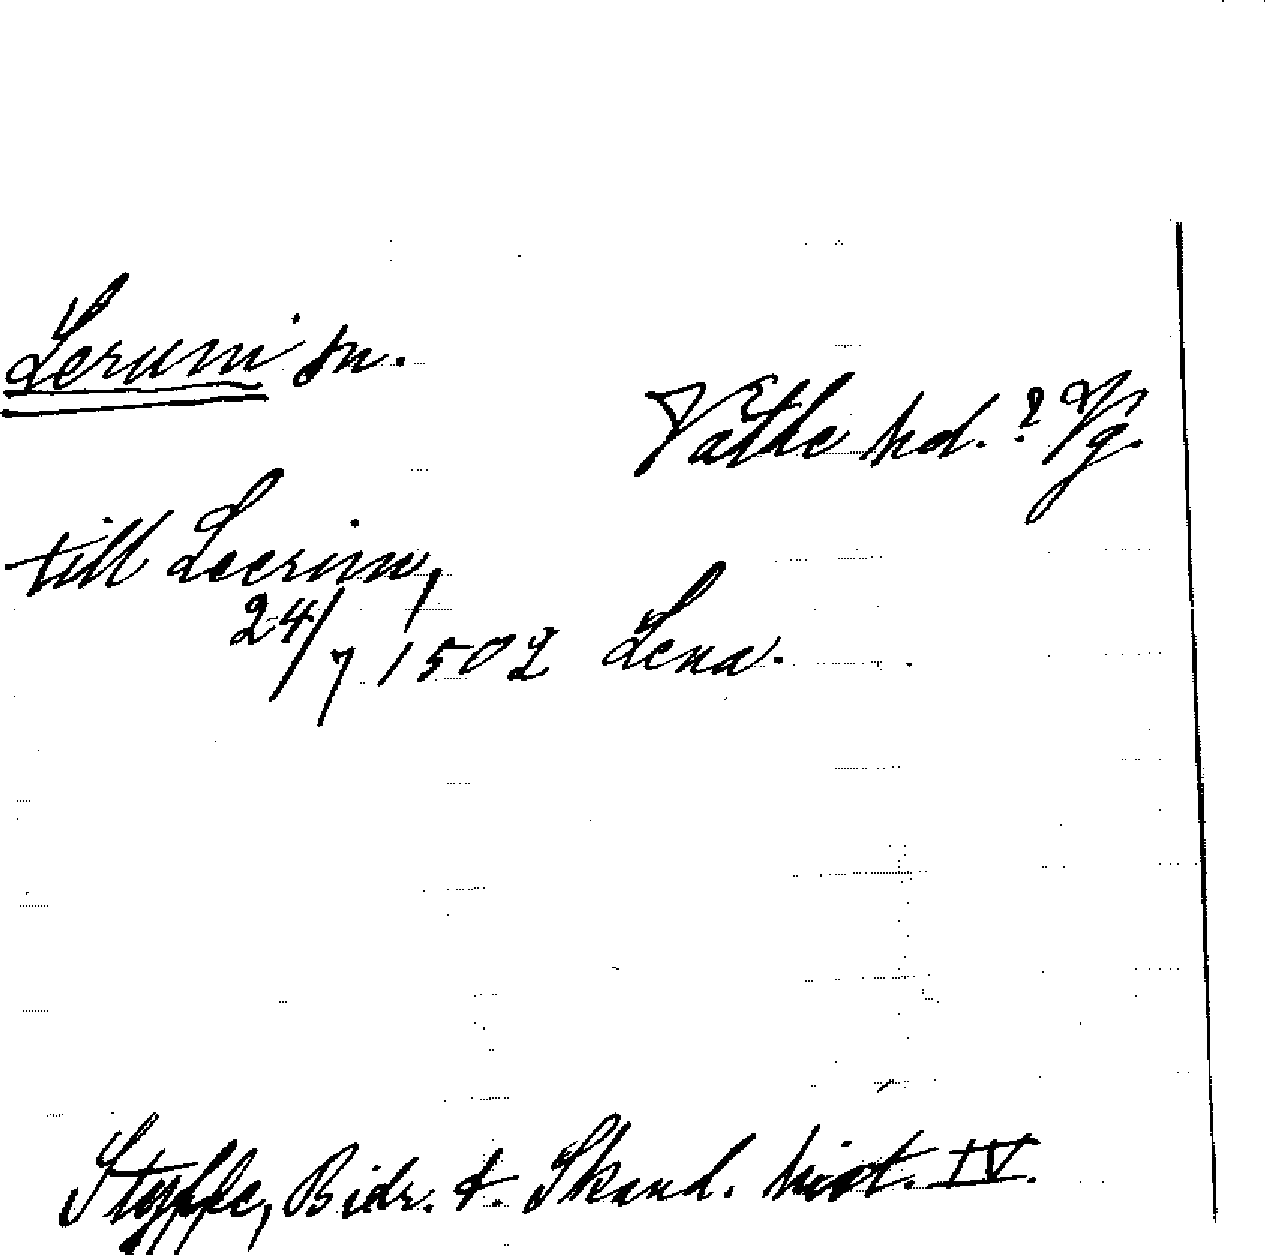 Lerum sn.
Vättle hd. ? Vg.
till Leerim,
24/7 1502 Lena.
Styffe, Bidr. t. Skand. hist. IV.